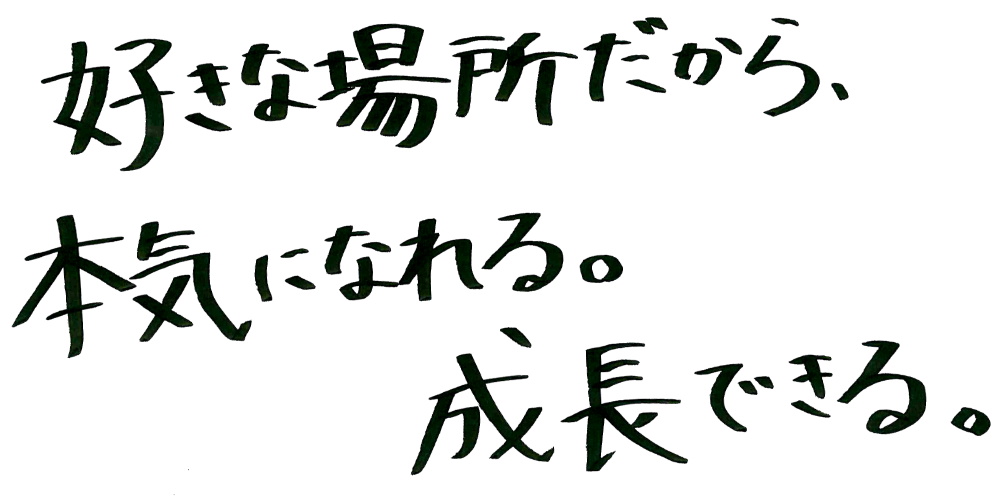 好きな場所だから、
本気になれる。
成長できる。